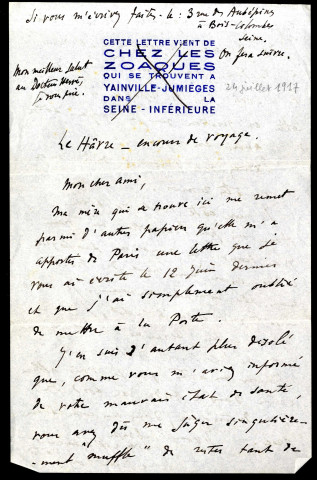 Si vous m'écrivez faites-le : 3 rue des Aubépines
à Bois-Colombes
Seine.
On fera suivre.
Mon meilleur salut
au Docteur
je vous prie.
CETTE LETTRE VIENT DE
CHEZ LES
ZOAQUES
QUI SE TROUVENT A
YAINVILLE-JUMIÈGES
DANS LA
SEINE-INFÉRIEURE
24 juillet 1917
Le Hâvre _ en cours de voyage.
Mon cher ami,
Ma mère qui a trouvé ici me remet
parmi d'autres papiers qu'elle m'a
apportés de Paris une lettre que je
vous ai écrite le 12 Juin dernier
et que j'ai simplement oublié
de mettre à la Poste.
J'en suis d'autant plus désolé
que, comme vous m'aviez informé
de votre mauvais état de santé,
vous avez dû me juger singulière-
-ment "muffle" de rester tant de